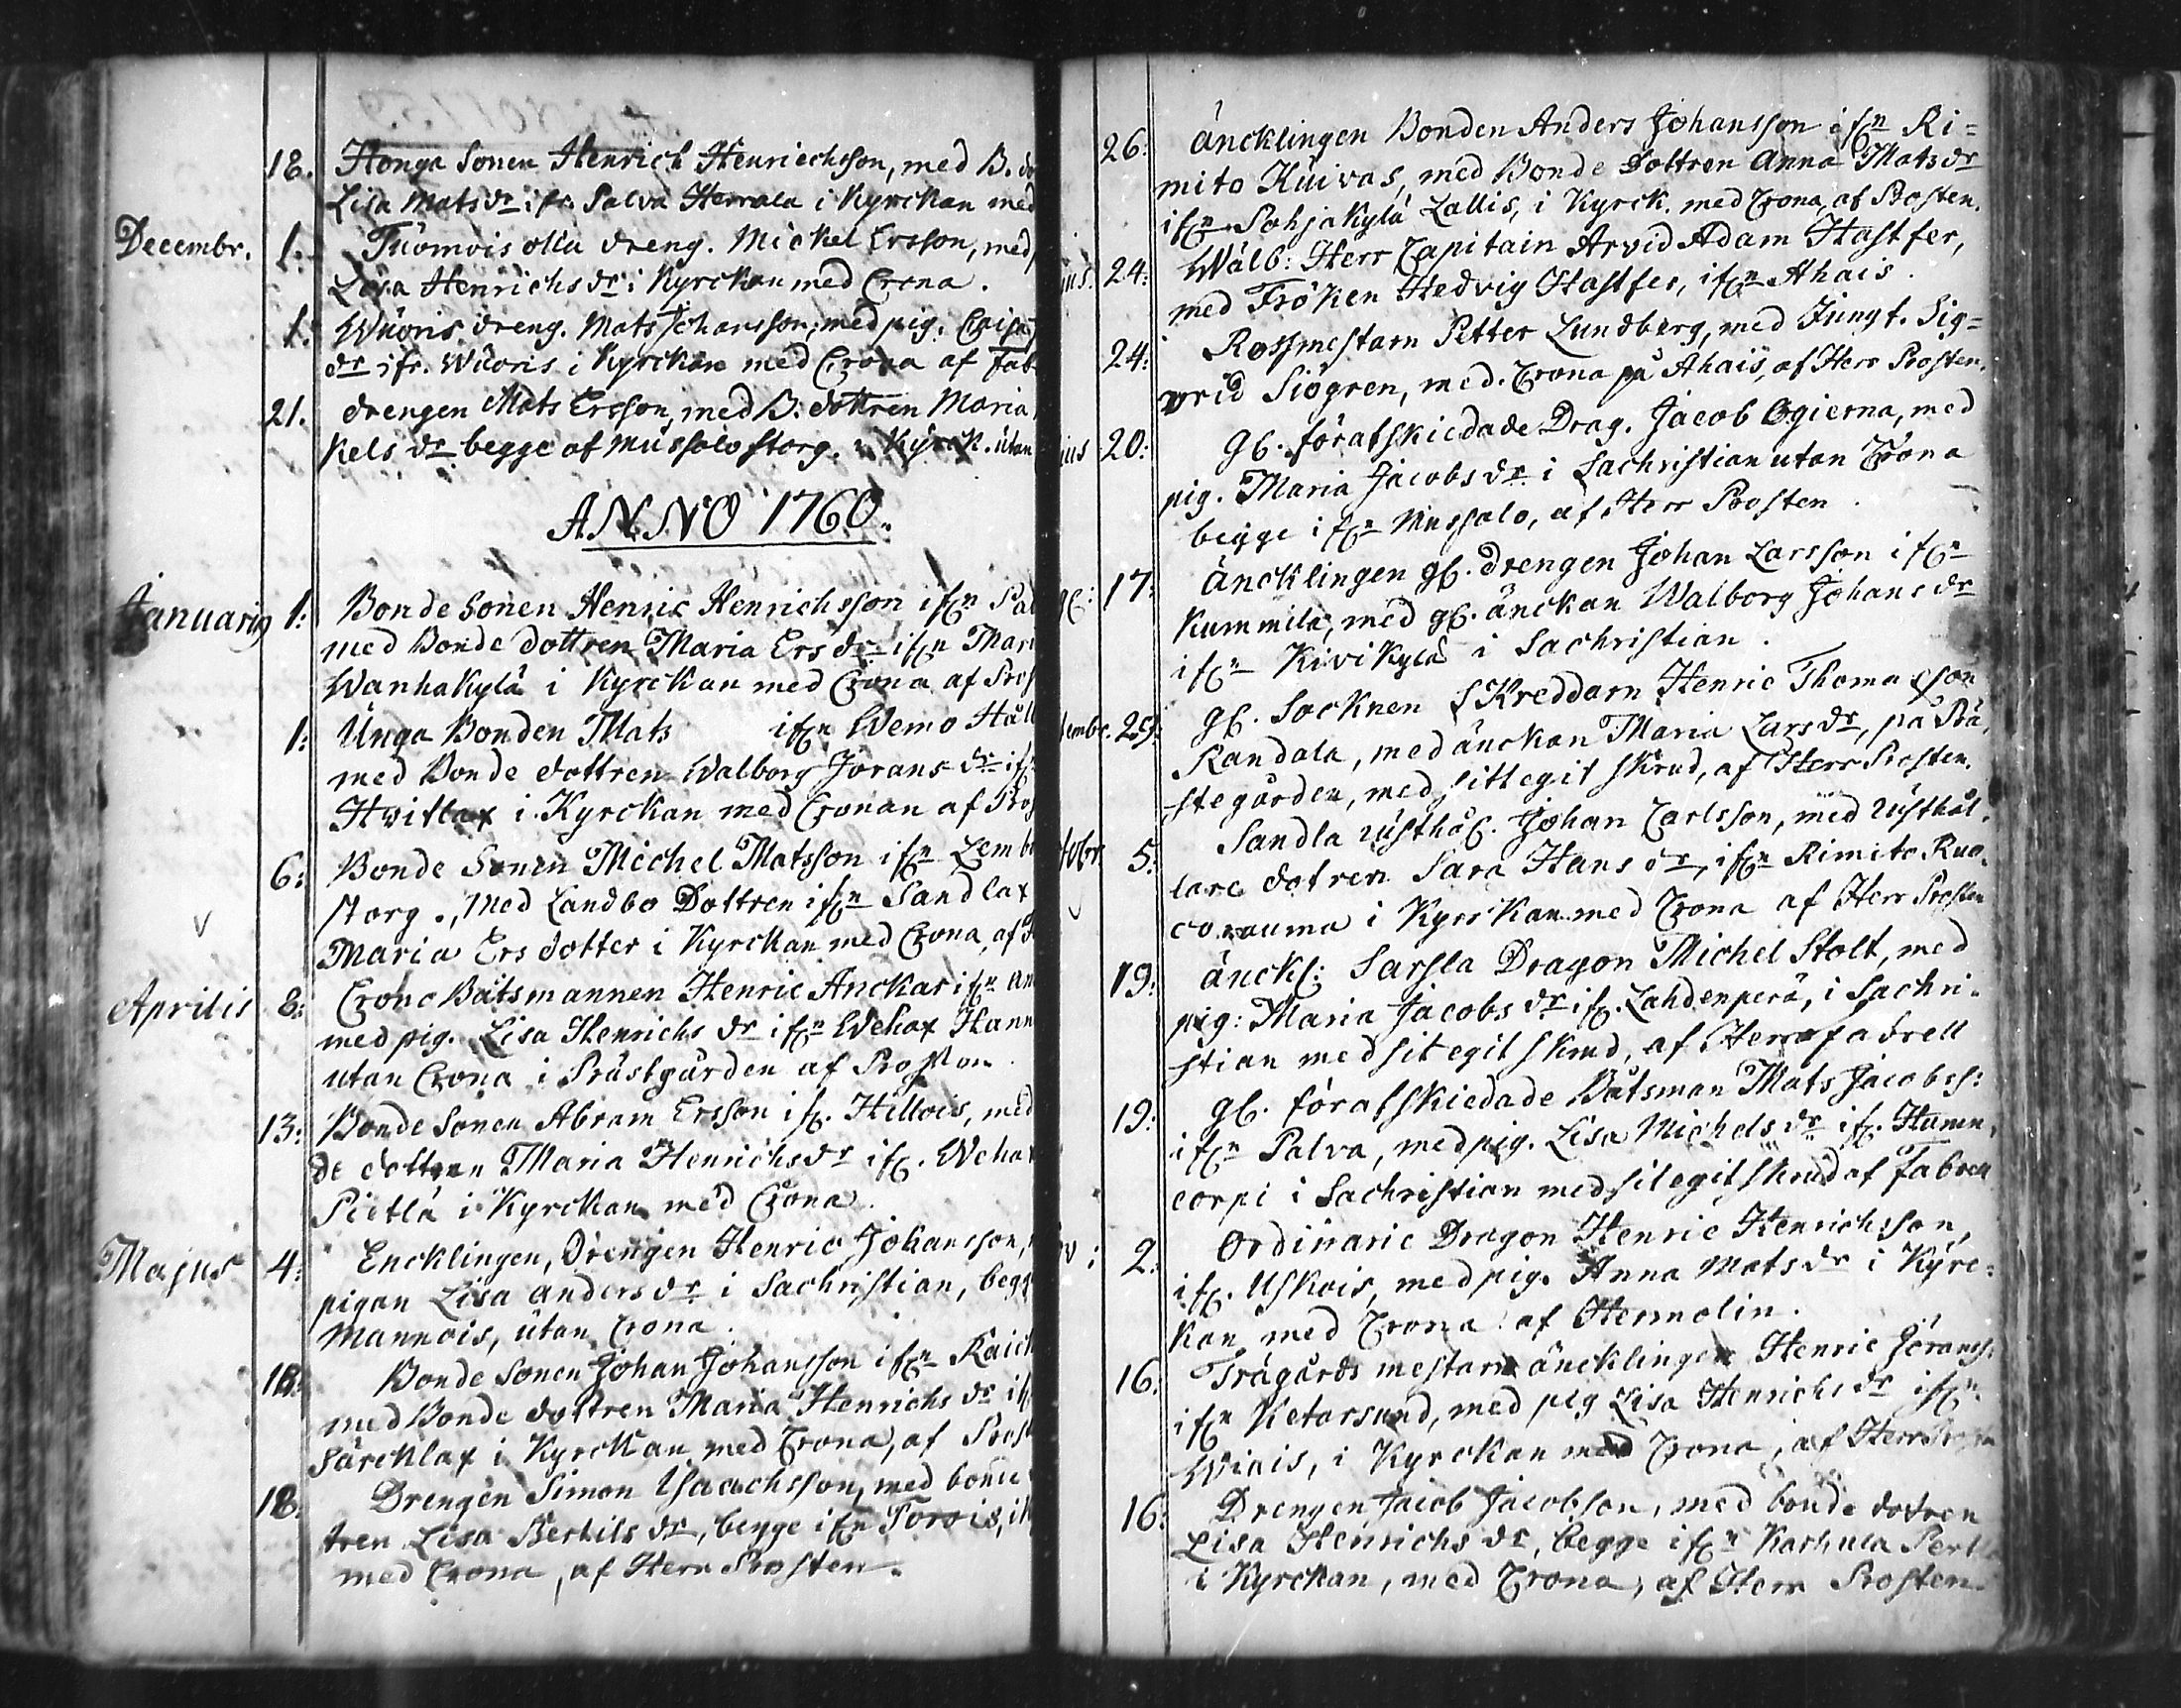 18. Honga Sonen Henrich Henriechsson, med B. do
Lisa Matsdr ifr. Palva Herrala i Kyrckan med
Decembr. 1. Tuomois olla dreng. Mickel Ersson, med
Lisa Henrichsdr i Kyrckan med Crona.
1. Wuoris dreng. Mats Johansson, med pig. Caisa
dr ifr. Wuoris i Kyrckan med Crona af Fab
21. drengen Mats Ersson, med B. dottren Maria
kels dr begge af Mussalo storg. i Kyrck. utan
ANNO 1760.
Januarius 1: Bonde Sonen Henric Henrichsson ifrn Pal
med Bonde dottren Maria Ersdr ifrn Mar
Wanhakylä i Kyrckan med Crona af Pros
1: Unga Bonden Mats ifrn Wemo Häll
med Bonde dottren Walborg Jörans dr ifrn
Hvitlax i Kyrckan med Cronan af Pros
6: Bonde Sonen Michel Matsson ifrn Lemb
storg., Med Landbo Dottren ifrn Sandlax
Maria Ersdotter i Kyrckan med Crona, af
Aprilis 8: Crono Båtsmannen Henric Anckar ifrn An
med pig. Lisa Henrichs dr ifrn Wehax Hann
utan Crona i Prästgården af Prosten.
13: Bonde Sonen Abram Ersson ifr. Hillois, med
de dottren Maria Henrichsdr ifr. Weha
Pietlä i Kyrckan med Crona.
Majus 4: Encklingen, Drengen Henric Johansson,
pigan Lisa anders dr i Sachristian, begg
Mannois, utan Crona.
18. Bonde Sonen Johan Johansson ifrn Kaich
med Bonde dottren Maria Henrichs dr if
Särcklax i Kyrckan med Crona, af Pros
18. Drengen Simon Isaachsson, med bonde
tren Lisa Bertils dr, begge ifrn Torois, i
med Crona, af Herr Prosten.
26: äncklingen Bonden Anders Johansson ifrn Ri=
mito Kuivas, med Bonde Dottren Anna Matsdr
ifrn Pohjakylä Lallis, i Kyrck. med Crona, af Prosten.
ius. 24: Wälb: Herr Capitain Arvid Adam Hastfer,
med Fröken Hedvig Hastfer, ifrn Ahais.
24: Rossmestarn Petter Lundberg, med Jungf. Sig=
vrid Siögren, med Crona på Ahais, af Herr Prosten.
ius 20: gl. förafskiedade Drag. Jacob Ogierna, med
pig. Maria Jacobs dr i Sachristian utan Crona
begge ifrn Mussalo, af Herr Prosten.
17: äncklingen gl. drengen Johan Larsson ifrn
Kummila, med gl. änckan Walborg Johans dr
ifrn Kivikylä i Sachristian.
tembr. 29: gl. Socknen Skreddarn Henric Thomasson
Randala, med änckan Maria Lars dr, på Prä=
stegården, med sitt egit skrud, af Herr Prosten.
tobr 5: Sandla rusthål. Johan Carlsson, med rusthål=
lare dotren Sara Hans dr, ifrn Rimito Ruo=
corauma i Kyrckan med Crona af Herr Prosten
19: änckl: Sarsla Dragon Michel Stolt, med
pig: Maria Jacobs dr ifr. Lahdenperä, i Sachri=
stian med sit egit skrud, af Herr Fabrell
19: gl. förafskiedade Båtsman Mats Jacobss:
ifrn Palva, med pig. Lisa Michels dr ifr. Hamin=
corpi i Sachristian med sit egit skrud af Fabrell
ov: 2: Ordinarie Dragon Henric Henrichsson,
ifr. Uskois, med pig. Anna Mats dr i Kyrc=
kan med Crona af Hermolin.
16: Trägårds mestarn äncklingen Henric Jöranss:
ifrn Ketarsund, med pig Lisa Henrichs dr ifrn
Wiais, i Kyrckan med Crona, af Herr Prosten
16: Drengen Jacob Jacobson, med bonde dotren
Lisa Henrichs dr, begge ifrn Karhula Pert
i Kyrckan, med Crona, af Herr Prosten.